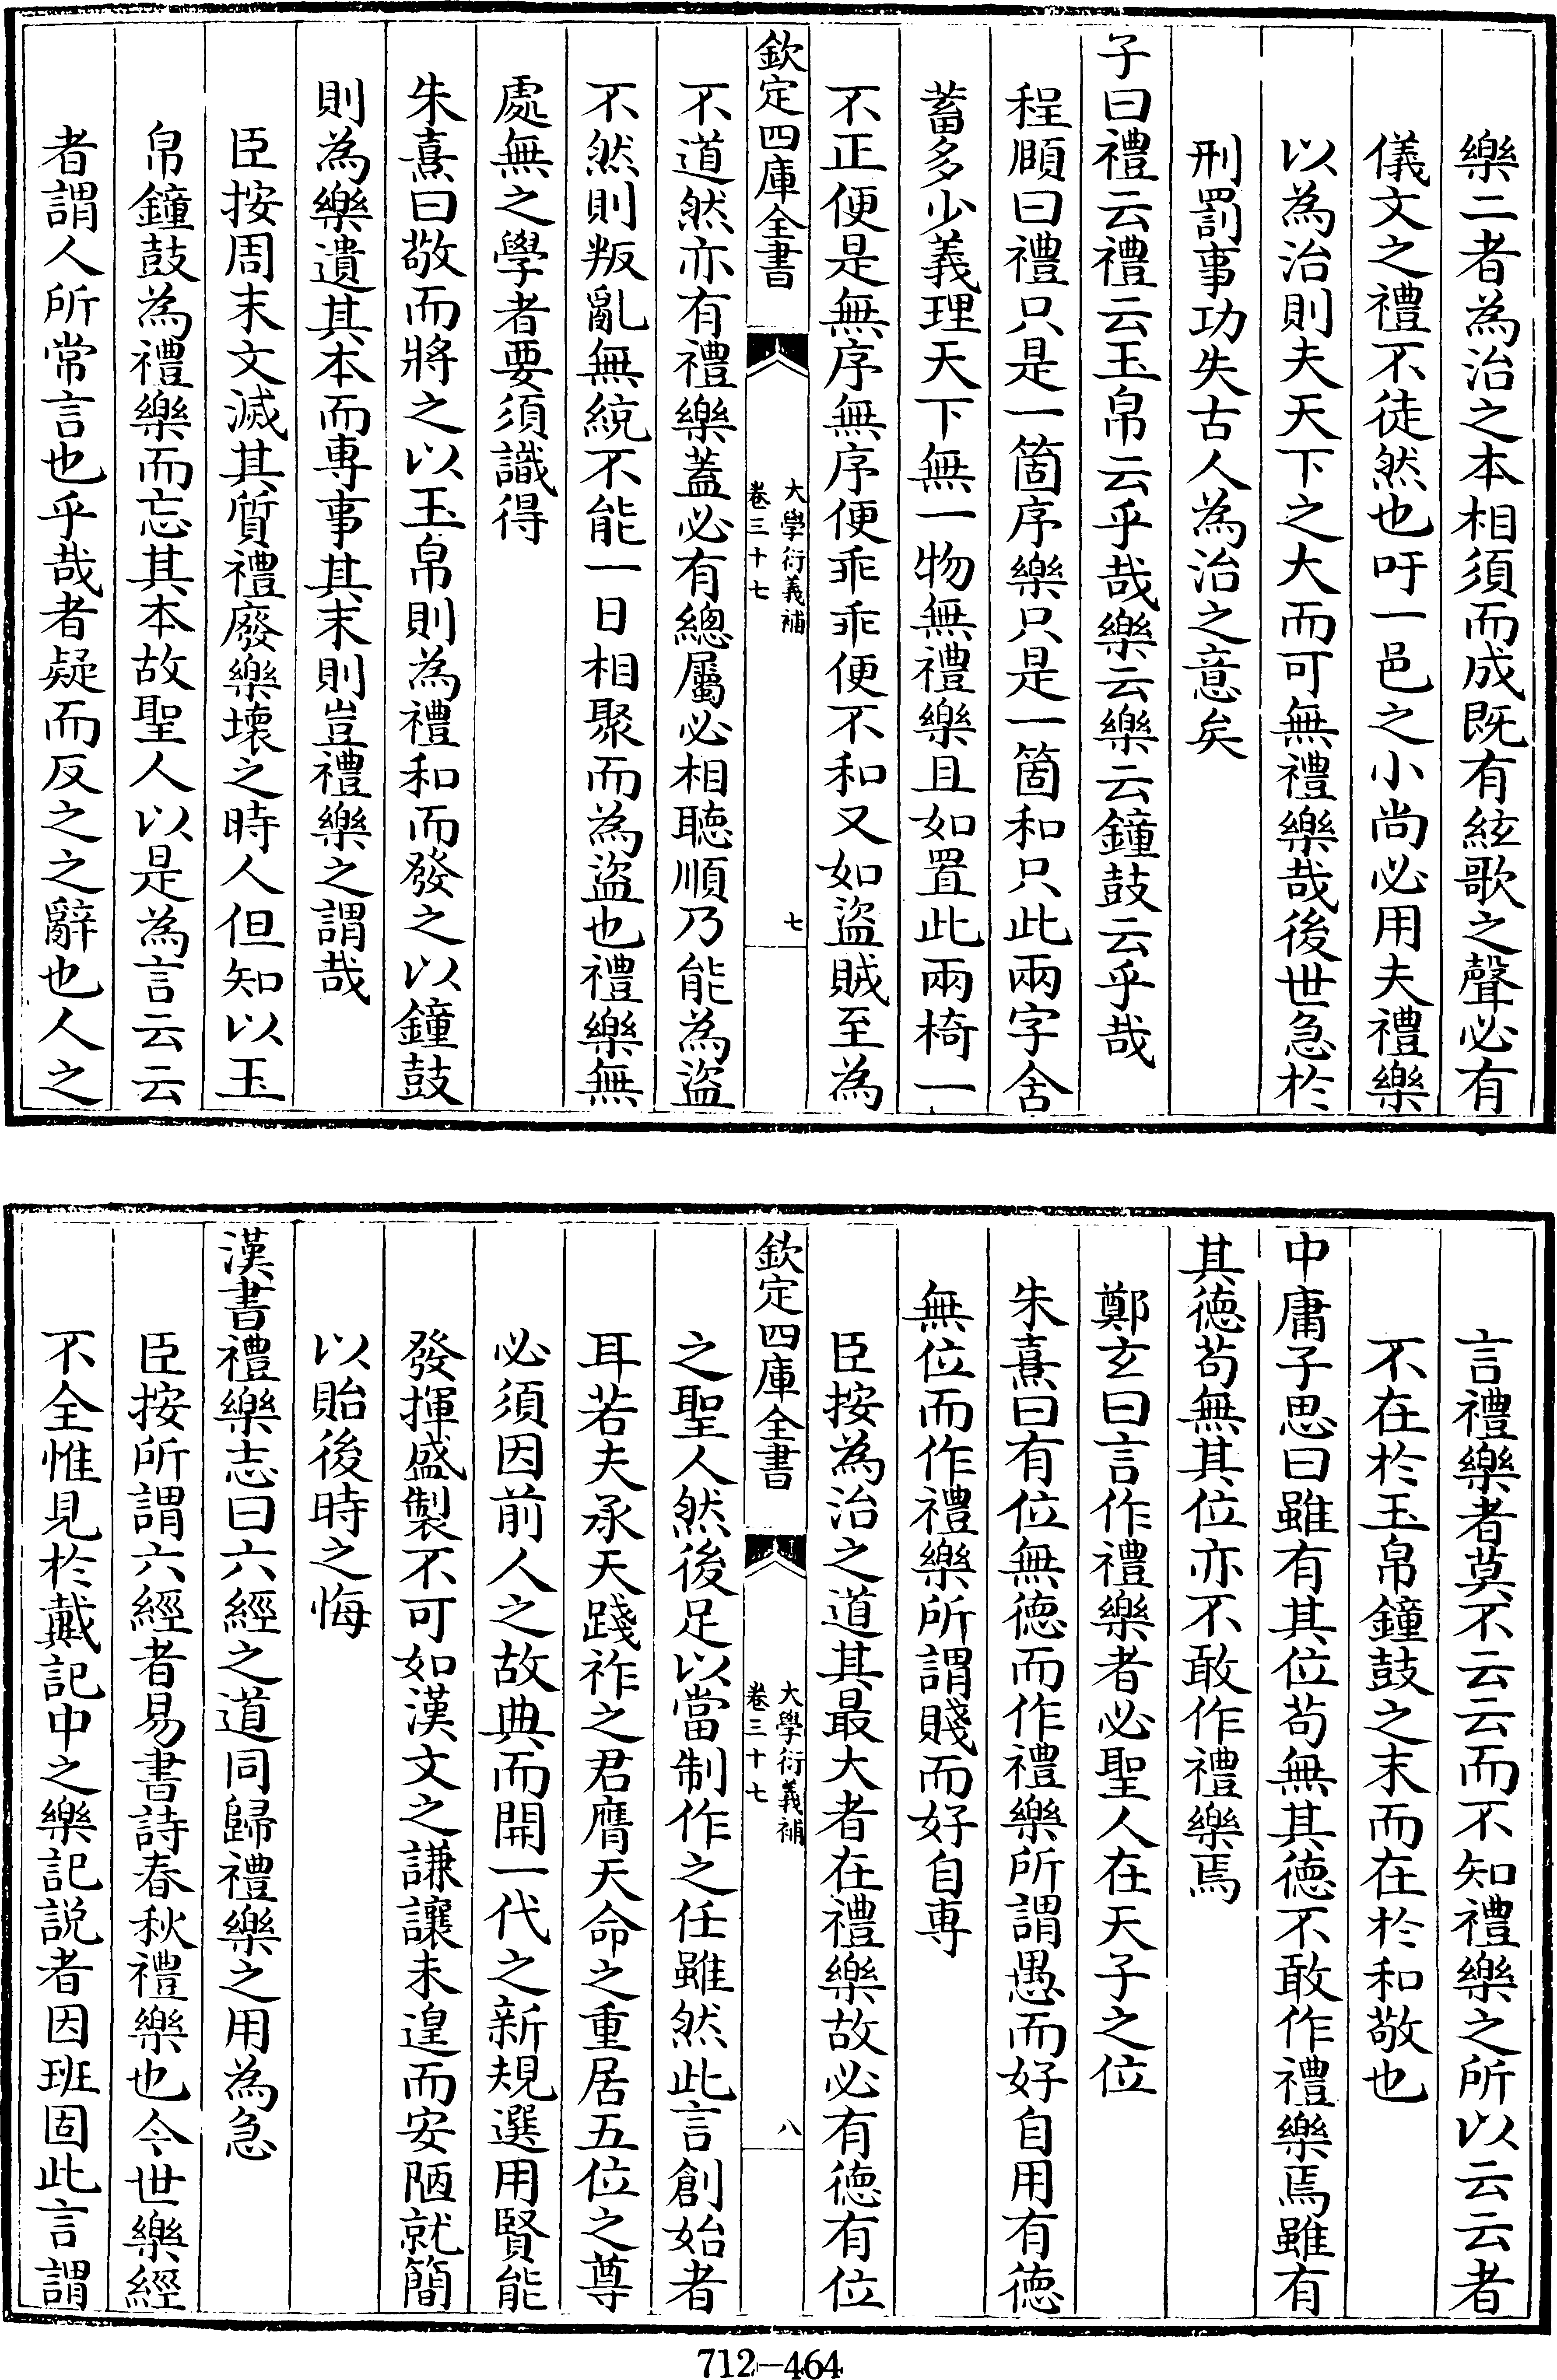 樂二者為治之本相須而成既有絃歌之聲必有
儀文之禮不徒然也吁一邑之小尚必用夫禮樂
以為治則夫天下之大而可無禮樂哉後世急於
刑罰事功失古人為治之意矣
子曰禮云禮云玉帛云乎哉樂云樂云鐘鼓云乎哉
程頤曰禮只是一箇序樂只是一箇和只此兩字含
蓄多少義理天下無一物無禮樂且如置此兩椅一
不正便是無序無序便乖乖便不和又如盜賊至為
欽定四庫全書
大學衍義補
卷三十七
七
不道然亦有禮樂蓋必有總屬必相聽順乃能為盜
不然則叛亂無統不能一日相聚而為盜也禮樂無
處無之學者要須識得
朱熹曰敬而將之以玉帛則為禮和而發之以鐘鼓
則為樂遺其本而專事其末則豈禮樂之謂哉
臣按周末文滅其質禮廢樂壞之時人但知以玉
帛鐘鼓為禮樂而忘其本故聖人以是為言云云
者謂人所常言也乎哉者疑而反之之辭也人之
言禮樂者莫不云云而不知禮樂之所以云云者
不在於玉帛鐘鼓之末而在於和敬也
中庸子思曰雖有其位苟無其德不敢作禮樂焉雖有
其德苟無其位亦不敢作禮樂焉
鄭玄曰言作禮樂者必聖人在天子之位
朱熹曰有位無德而作禮樂所謂愚而好自用有德
無位而作禮樂所謂賤而好自專
臣按為治之道其最大者在禮樂故必有德有位
欽定四庫全書
大學衍義補
卷三十七
八
之聖人然後足以當制作之任雖然此言創始者
耳若夫承天踐祚之君膺天命之重居五位之尊
必須因前人之故典而開一代之新規選用賢能
發揮盛製不可如漢文之謙讓未遑而安陋就簡
以貽後時之悔
漢書禮樂志曰六經之道同歸禮樂之用為急
臣按所謂六經者易書詩春秋禮樂也今世樂經
不全惟見於戴記中之樂記說者因班固此言謂
712-464